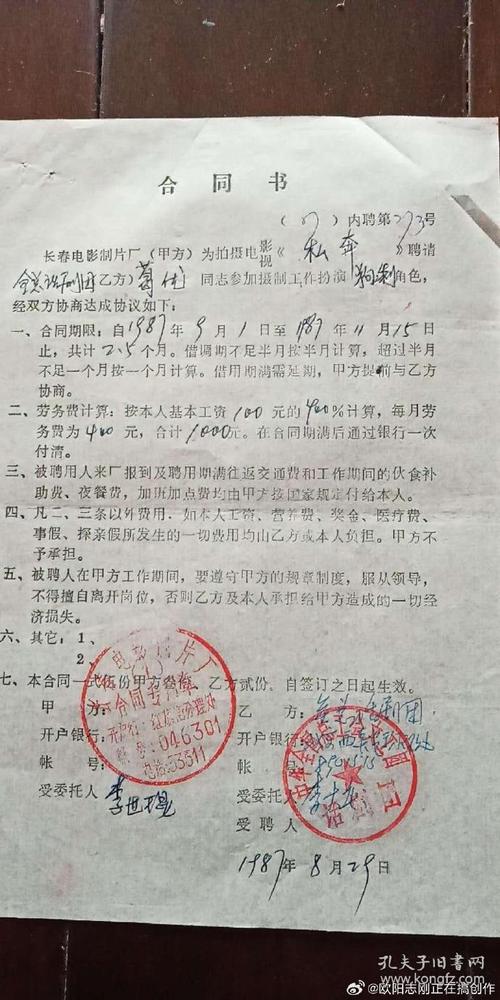 合同书
(87)内聘第273号
长春电影制片厂(甲方)为拍摄电影视《私奔》聘请
全总话剧团乙方)葛优同志参加摄制工作扮演 角色,
经双方协商达成协议如下:
一、合同期限:自1987年9月1日至1987年11月15日
止,共计2.5个月。借调期不足半月按半月计算,超过半月
不足一个月按一个月计算。借用期满需延期,甲方提前与乙方
协商。
二、劳务费计算:按本人基本工资100元的400%计算,每月劳
务费为400元,合计1000元。在合同期满后通过银行一次
付清。
三、被聘用人来厂报到及聘用期满往返交通费和工作期间的伙食补
助费、夜餐费,加班加点费均由甲方按国家规定付给本人。
四、凡二、三条以外费用,如本人工资、营养费、奖金、医疗费、
事假、探亲假所发生的一切费用均由乙方或本人负担。甲方不
予承担。
五、被聘人在甲方工作期间,要遵守甲方的规章制度,服从领导,
不得擅自离开岗位,否则乙方及本人承担给甲方造成的一切经
济损失。
六、其它:1、
2、
七、本合同一式伍份甲方叁份,乙方贰份。自签订之日起生效。
甲方:
开户银行:
帐号:
受委托人
电影制片厂
合同专用章
开户行:红旗街办理处
帐号:046301
电话:53311
乙方:全总话剧团
开户银行:
帐号:
受委托人
受聘人
话剧团
1987年8月29日
孔夫子旧书网
@欧阳志刚正在搞创作